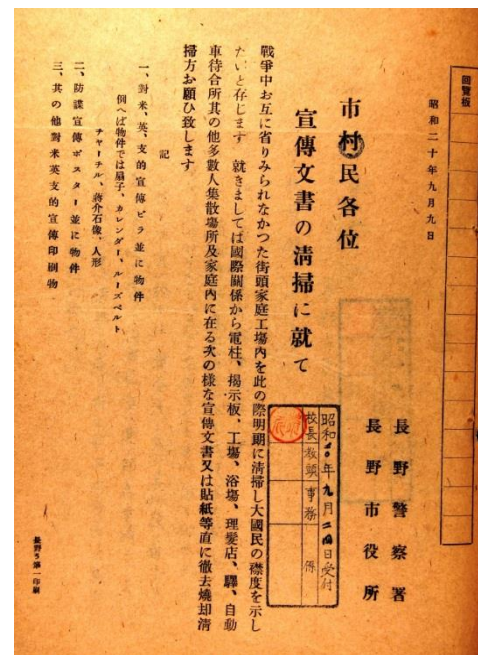 回覧板
昭和二十年九月九日
長野警察署
長野市役所
市村民各位
宣傳文書の清掃に就て
戰爭中お互に省りみられなかつた街頭家庭工場內を此の際明期に清掃し大國民の襟度を示し
たいと存じます 就きましては國際關係から電柱、揭示板、工場、浴場、理髮店、驛、自動
車待合所其の他多數人集散場所及家庭內に在る次の樣な宣傳文書又は貼紙等直に徹去燒却清
掃方お願ひ致します
記
一、對米、英、支的宣傳ビラ並に物件
例へば物件では扇子、カレンダー、ルーズベルト
チャーチル、蔣介石像、人形
二、防諜宣傳ポスター並に物件
三、其の他對米英支的宣傳印刷物
昭和20年九月二四日受付
校長 教頭 事務 係
長野5第一印刷